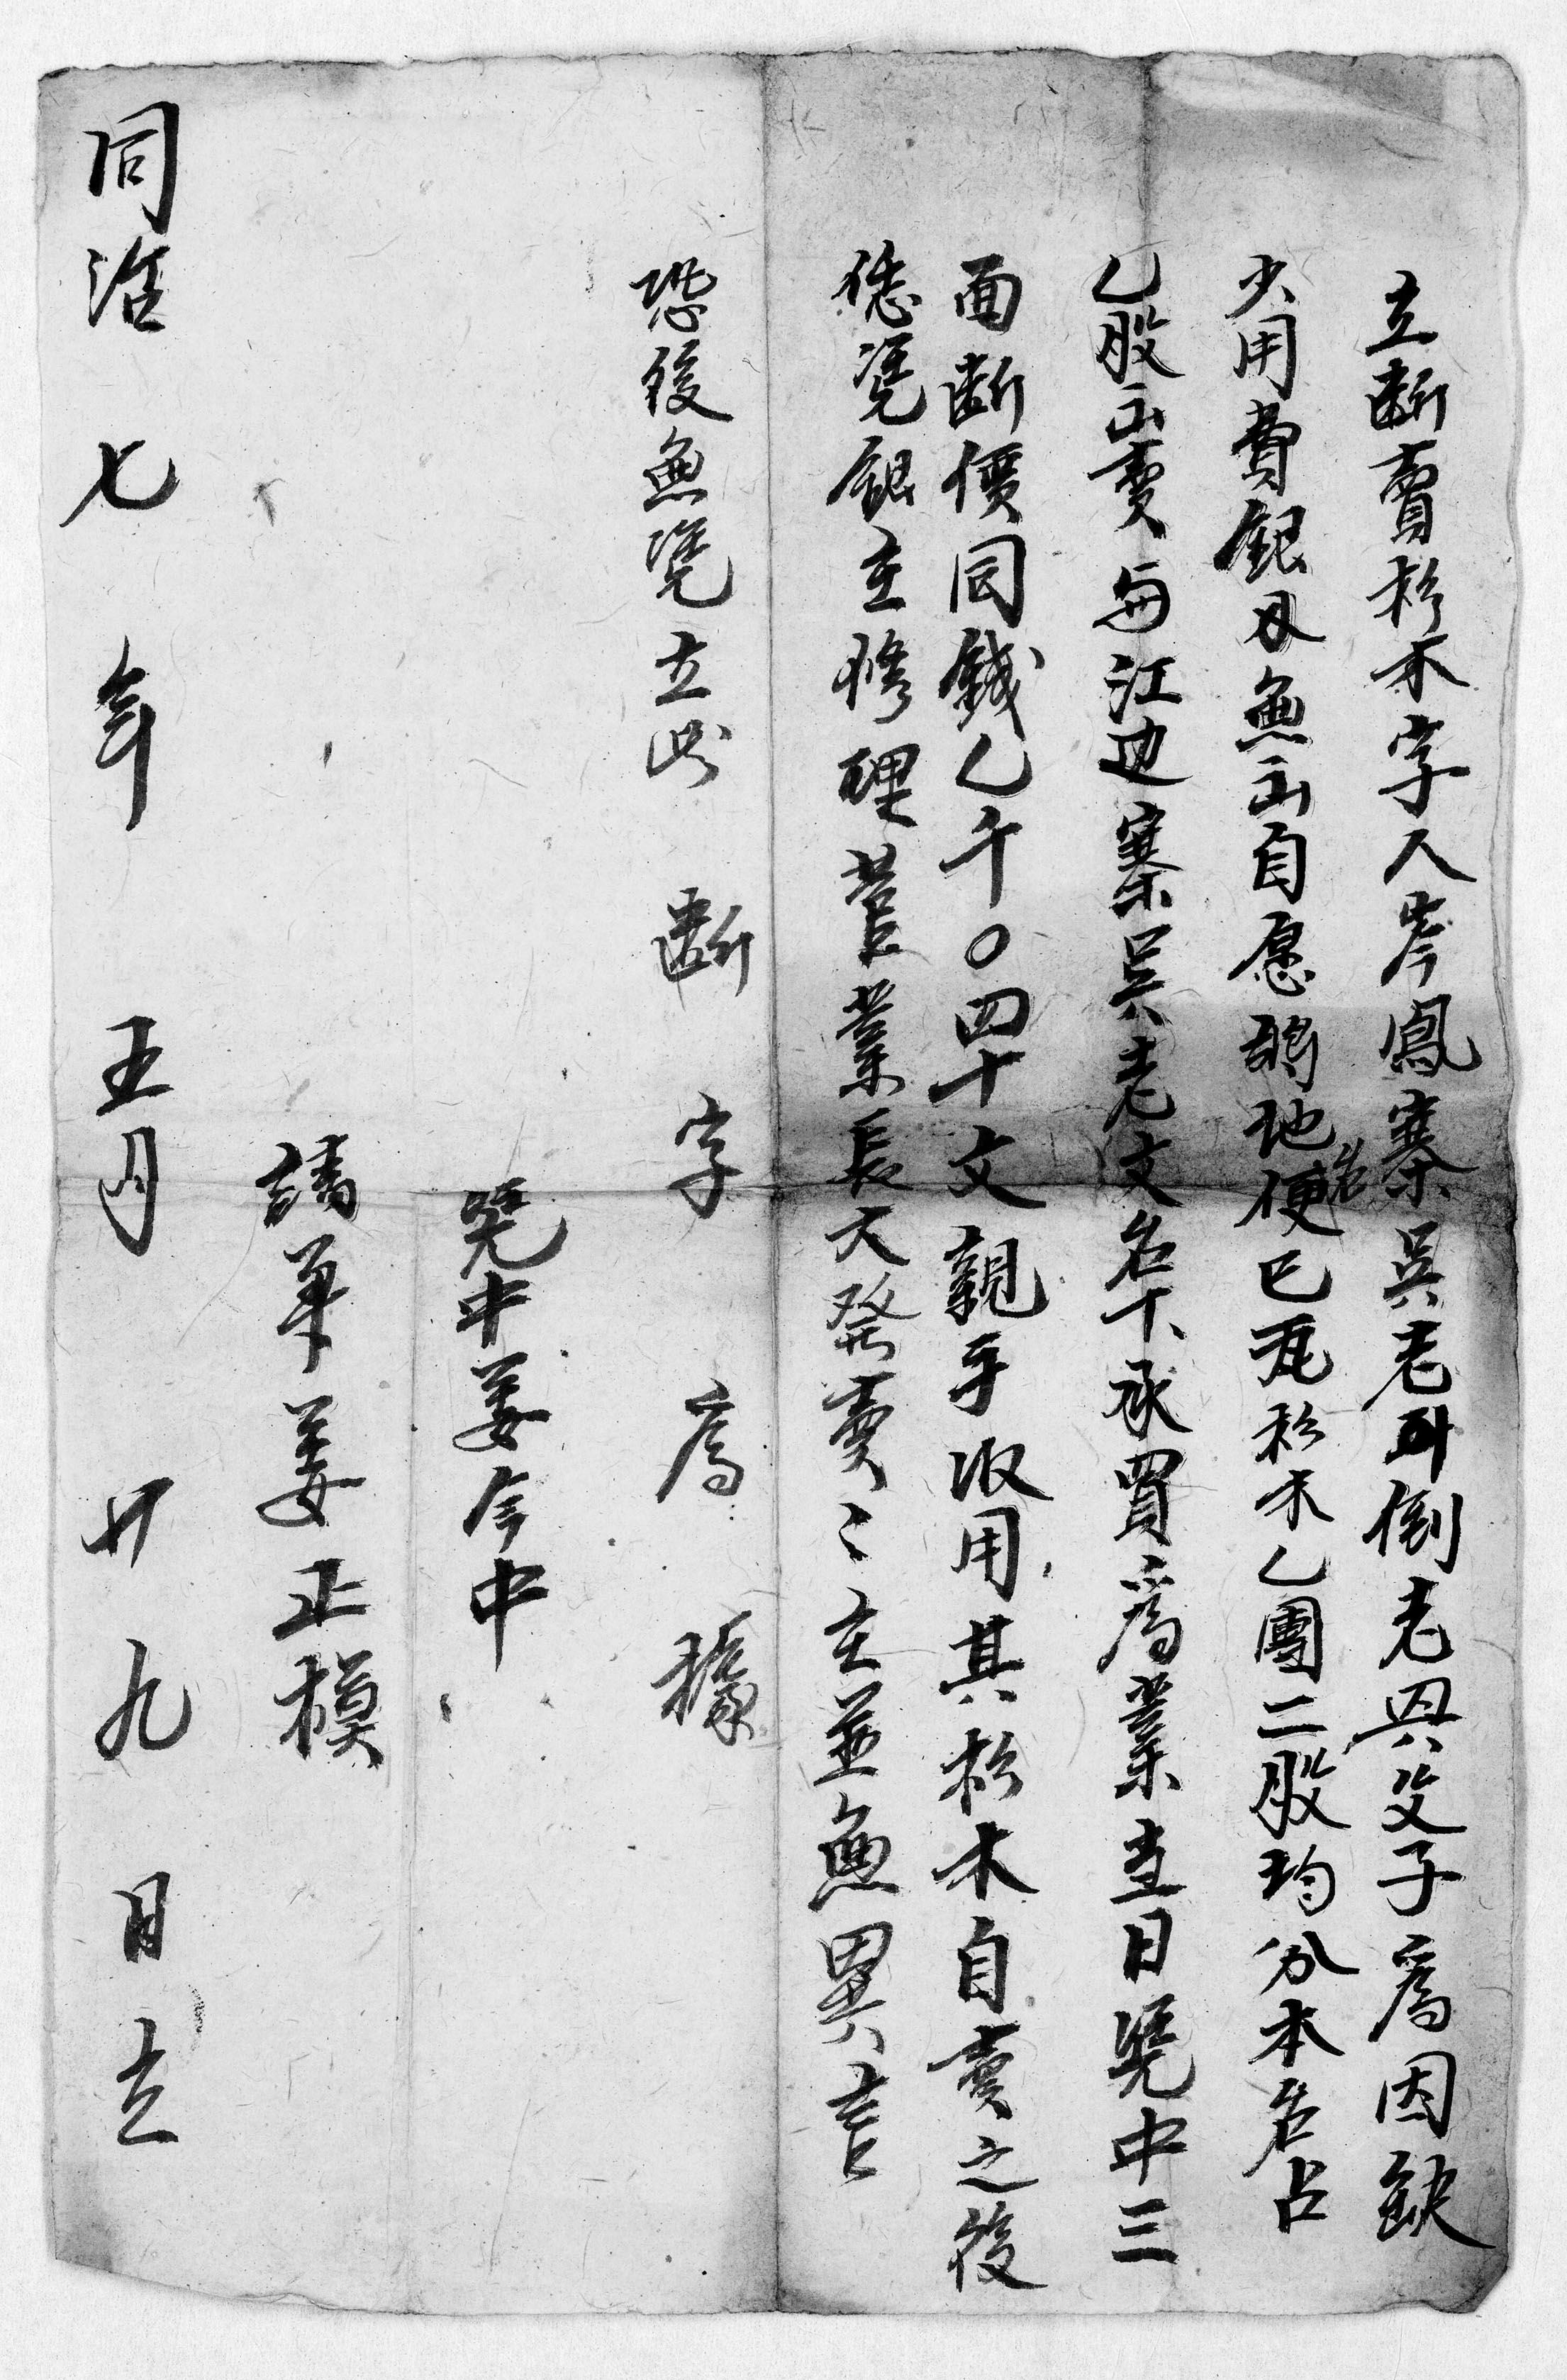 立斷賣杉木字人岑鳳寨吳老倒老父子爲因缺
少用費銀無出自愿將地名便巳杉木乙團二股均分本名占
乙股出賣與江边寨吳老文名下承買爲業當日凴中三
面斷價同錢乙千〇四十文親手收用其杉木自賣之後
凴銀主修理管業長大發賣〻主並無異言
恐後無凴立此斷字爲據
凴中姜今中
請筆姜正模
同治七年五月廿九日立